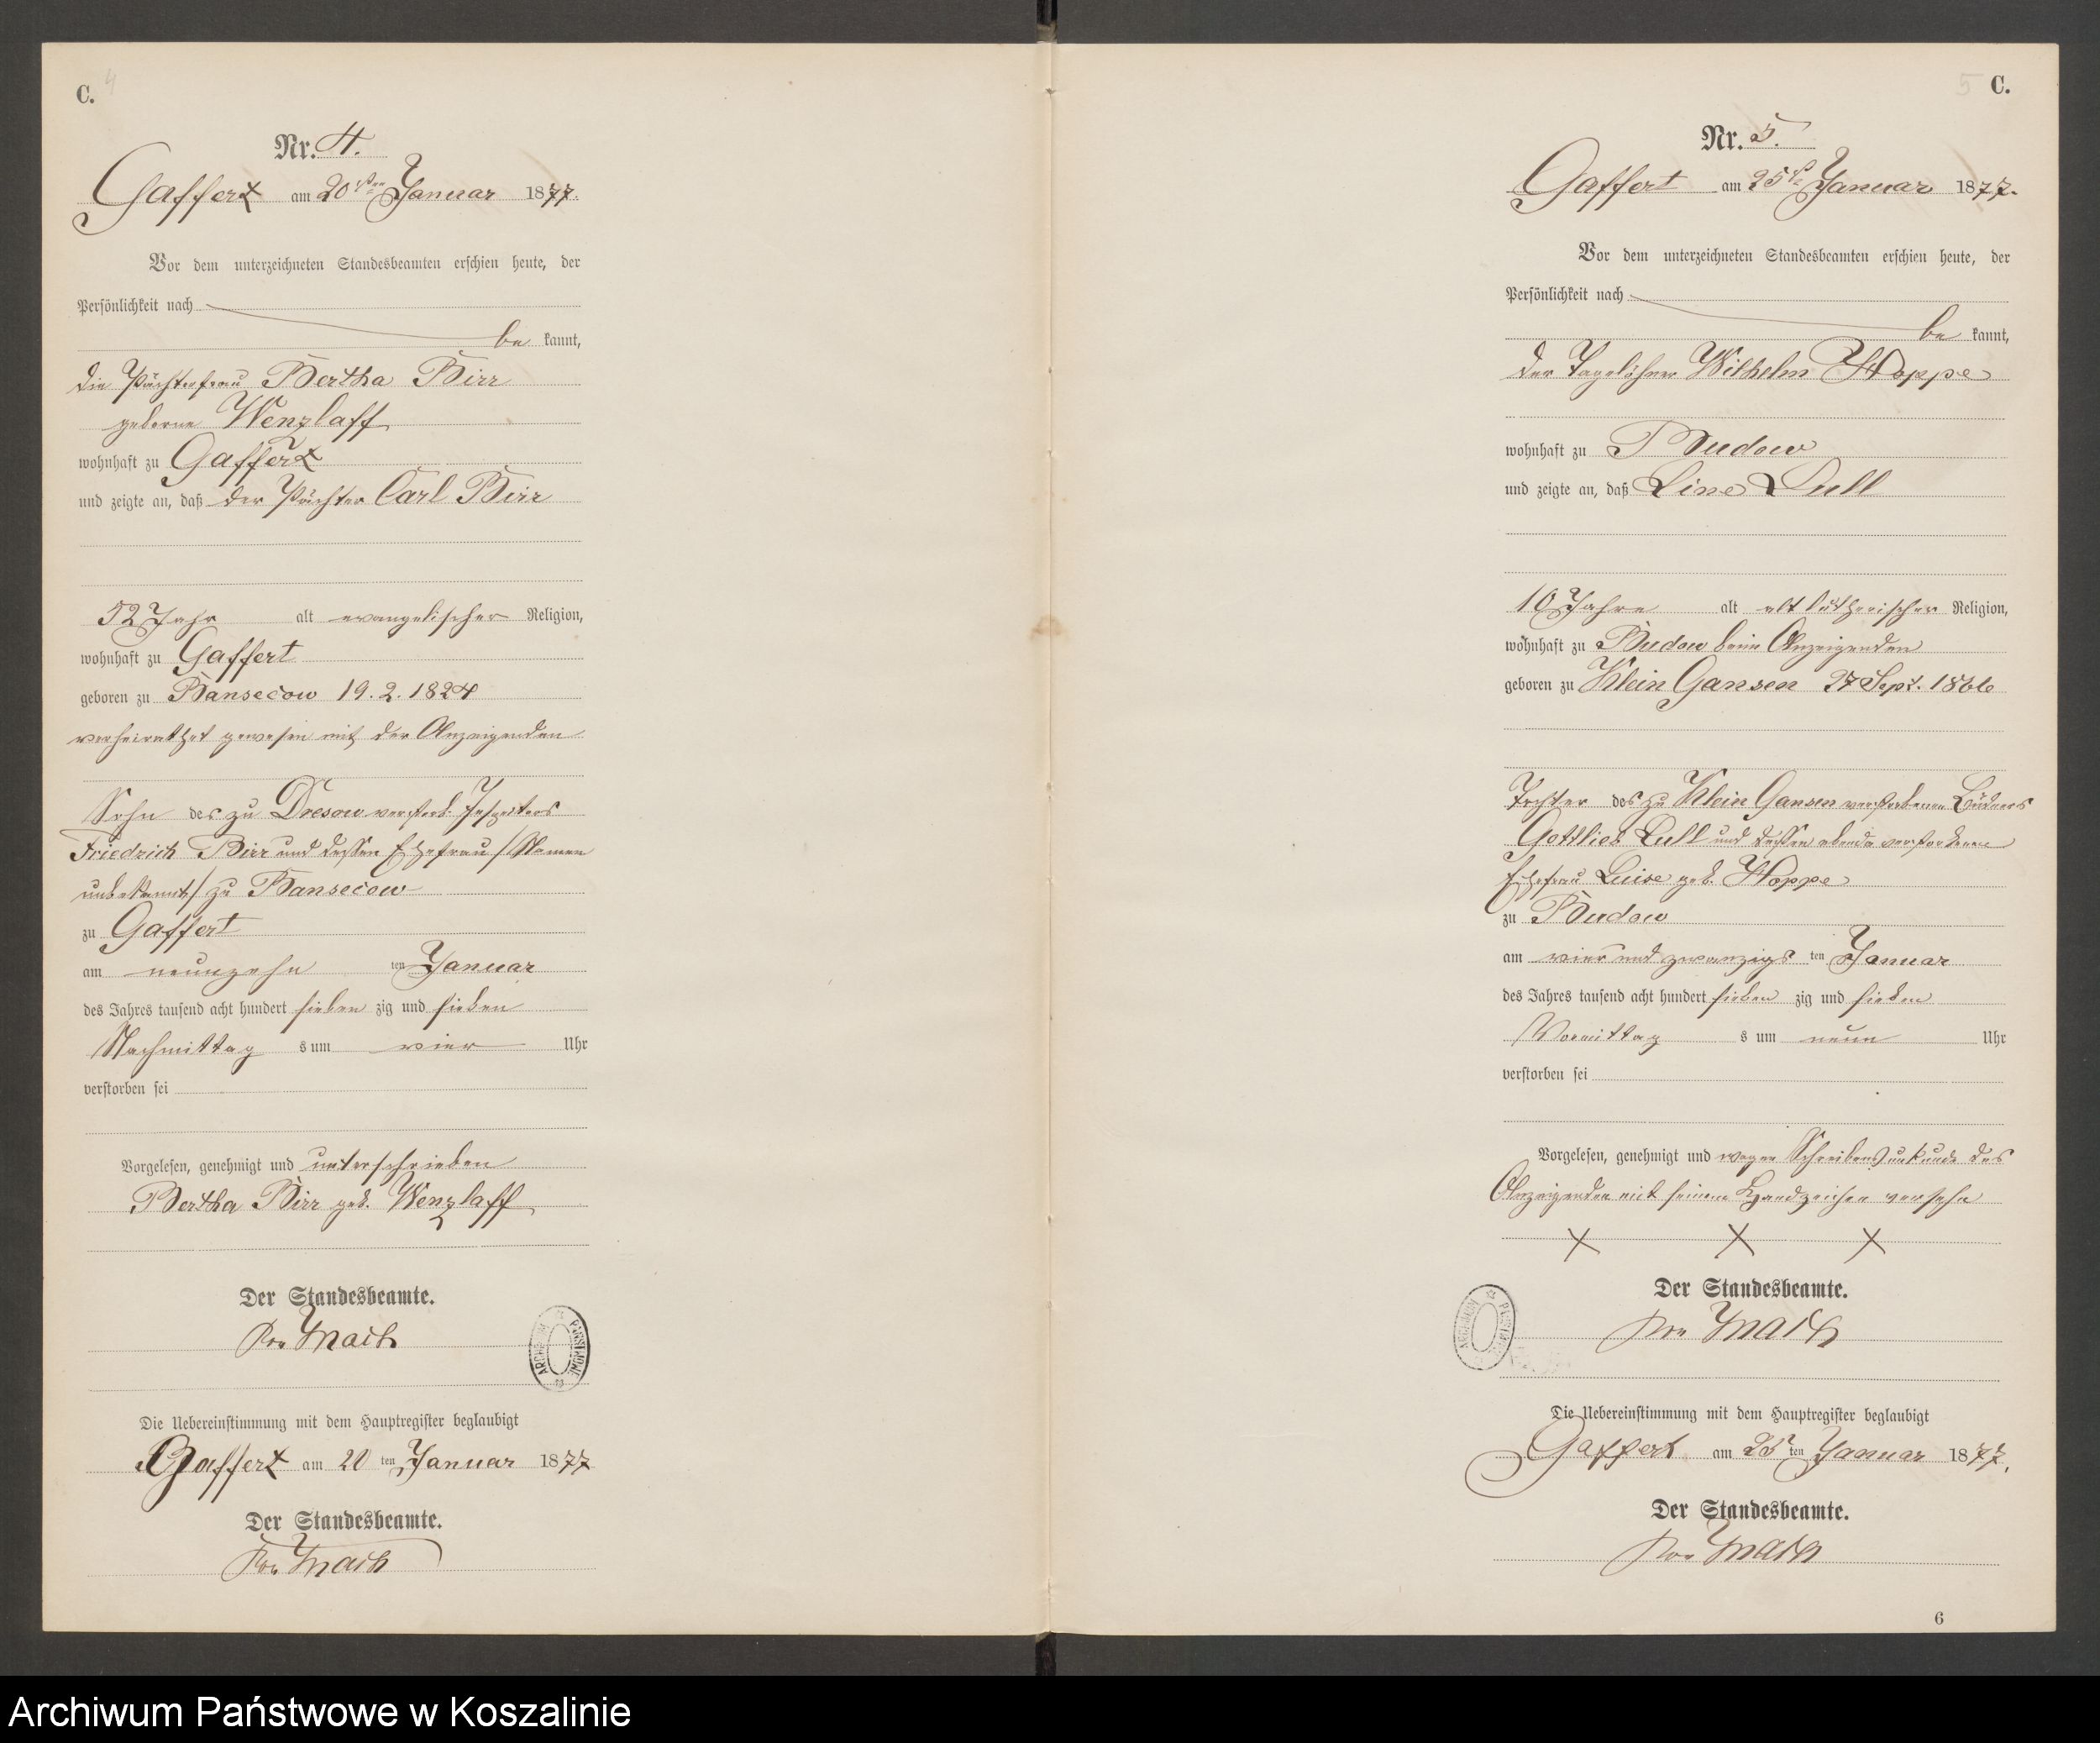 C. 4
Nr. 4.
Gaffert am 20sten Januar 1877.
Vor dem unterzeichneten Standesbeamten erschien heute, der
Persönlichkeit nach
be kannt,
die Pächterfrau Bertha Birr
geborne Wenzlaff
wohnhaft zu Gaffert
und zeigte an, daß der Pächter Carl Birr
52 Jahr alt evangelischer Religion,
wohnhaft zu Gaffert
geboren zu Bansecow 19. 2. 1824
verheirathet gewesen mit der Anzeigenden
Sohn des zu Dresow verstorb.
Friedrich Birr und dessen Ehefrau /Namen
unbekannt/ zu Bansecow
zu Gaffert
am neunzehn ten Januar
des Jahres tausend acht hundert sieben zig und sieben
Nachmittag s um vier Uhr
verstorben sei
Vorgelesen, genehmigt und unterschrieben
Bertha Birr geb. Wenzlaff
Der Standesbeamte.
Mach
ARCHIWUM PAŃSTWOWE
Die Uebereinstimmung mit dem Hauptregister beglaubigt
Gaffert am 20 ten Januar 1877
Der Standesbeamte.
Mach
5 C.
Nr. 5.
Gaffert am 25 Januar 1877.
Vor dem unterzeichneten Standesbeamten erschien heute, der
Persönlichkeit nach
be kannt,
der Tagelöhner Wilhelm Hoppe
wohnhaft zu Budow
und zeigte an, daß Line Lull
10 Jahre alt altlutherischer Religion,
wohnhaft zu Budow beim Anzeigenden
geboren zu Klein Gansen 27 Sept. 1866
Tochter des zu Klein Gansen verstorbenen Büdners
Gottlieb Lull und dessen ebenda verstorbenen
Ehefrau Luise geb. Hoppe
zu Budow
am vier und zwanzigs ten Januar
des Jahres tausend acht hundert sieben zig und sieben
Vormittag s um neun Uhr
verstorben sei
Vorgelesen, genehmigt und wegen Schreibensunkunde des
Anzeigenden mit seinem Handzeichen versehn
X X X
Der Standesbeamte.
Mach
ARCHIWUM PAŃSTWOWE
Die Uebereinstimmung mit dem Hauptregister beglaubigt
Gaffert am 25 ten Januar 1877.
Der Standesbeamte.
Mach
6
Archiwum Państwowe w Koszalinie